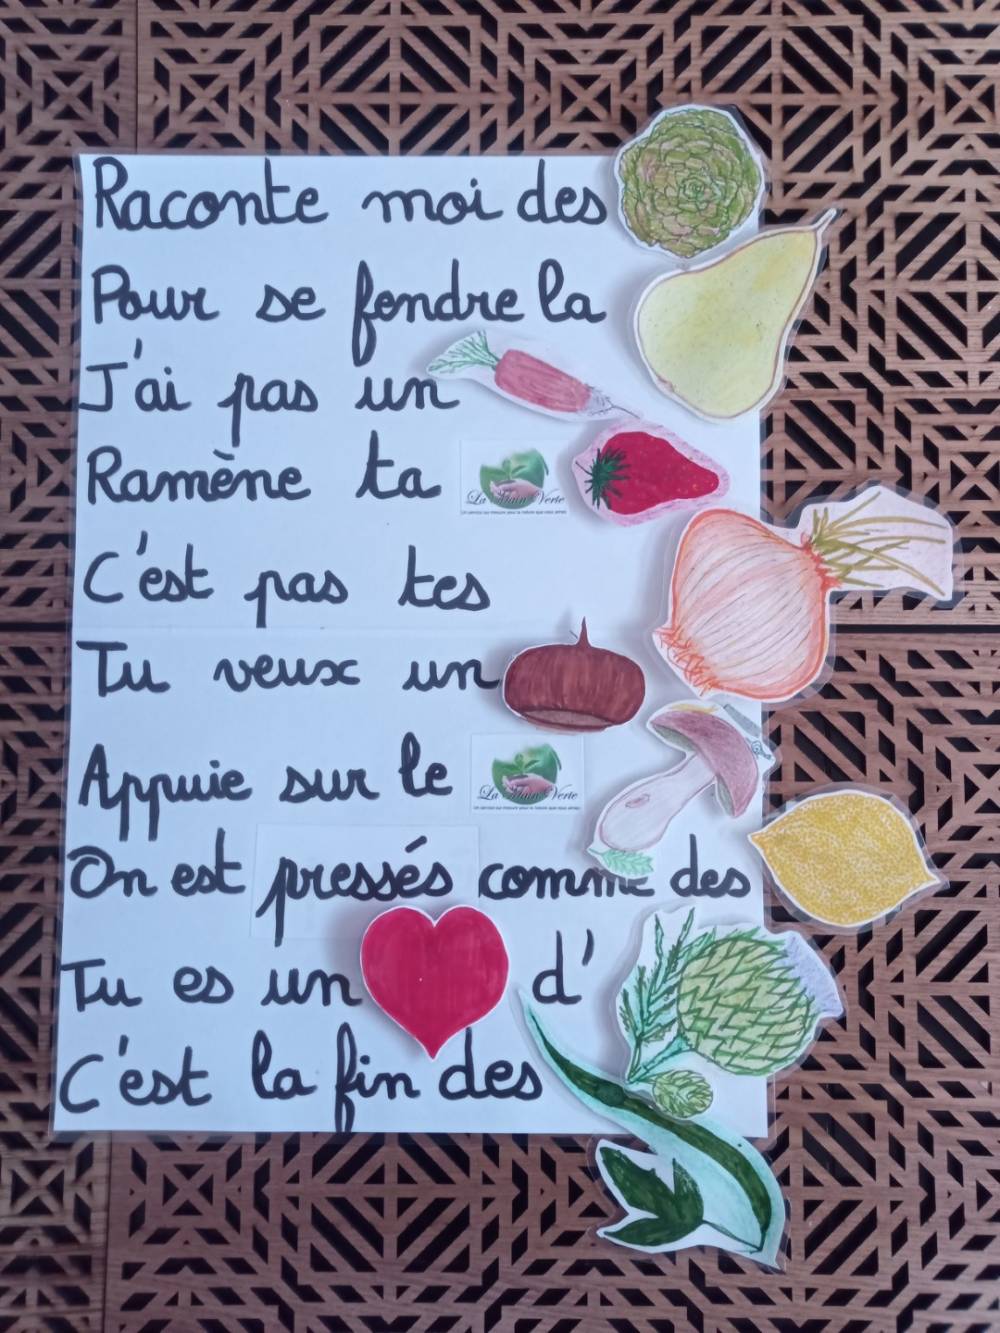 Raconte moi des
Pour se fendre la
J'ai pas un
Ramène ta
La Main Verte
Un service sur mesure pour la nature que nous aimons
C'est pas tes
Tu veux un
Appuie sur le
La Main Verte
Un service sur mesure pour la nature que nous aimons
On est pressés comme des
Tu es un d'
C'est la fin des